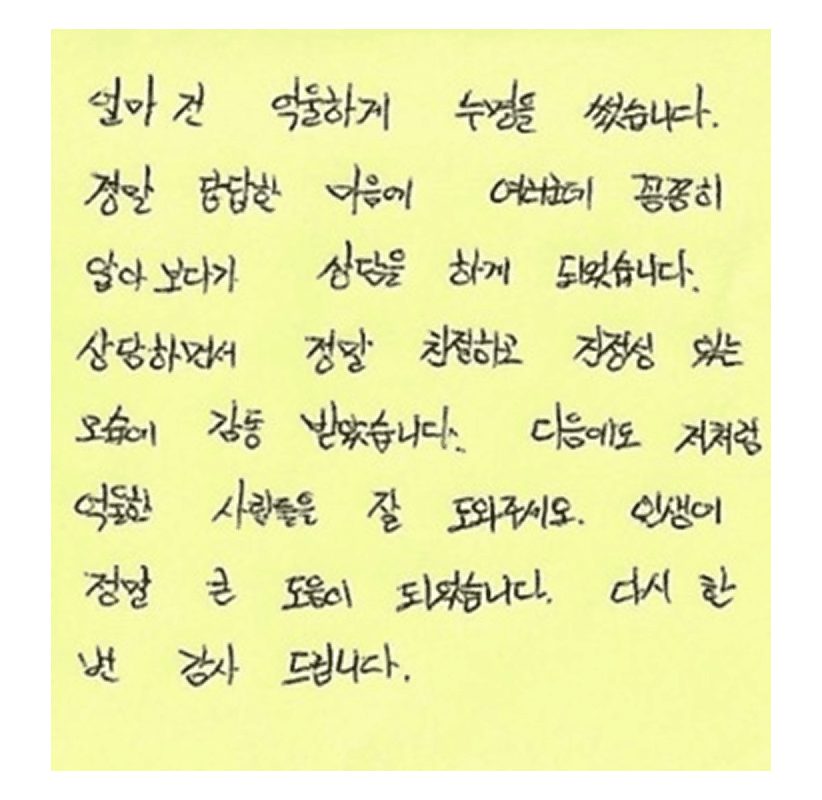 얼마 전 억울하게 누명을 썼습니다.
정말 답답한 마음에 여러군데 꼼꼼히
알아 보다가 상담을 하게 되었습니다.
상담하면서 정말 친절하고 진정성 있는
모습에 감동 받았습니다. 다음에도 저처럼
억울한 사람들을 잘 도와주세요. 인생에
정말 큰 도움이 되었습니다. 다시 한
번 감사 드립니다.